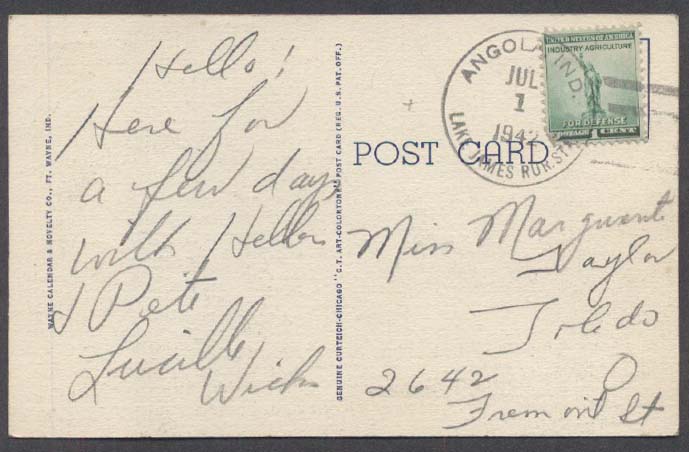 Hello!
Here for
a few days
with Hellen
& Pete
Lucille
Wicks
WAYNE CALENDAR & NOVELTY CO., FT. WAYNE, IND.
GENUINE CURTEICH-CHICAGO "C.T. ART-COLORTONE" POST CARD (REG. U.S. PAT. OFF.)
POST CARD
ANGOLA, IND.
JUL
1
1942
LAKE JAMES RUR. STA.
UNITED STATES OF AMERICA
INDUSTRY AGRICULTURE
FOR DEFENSE
POSTAGE 1 CENT
Miss Marguerite
Taylor
Toledo
O
2642
Fremont St